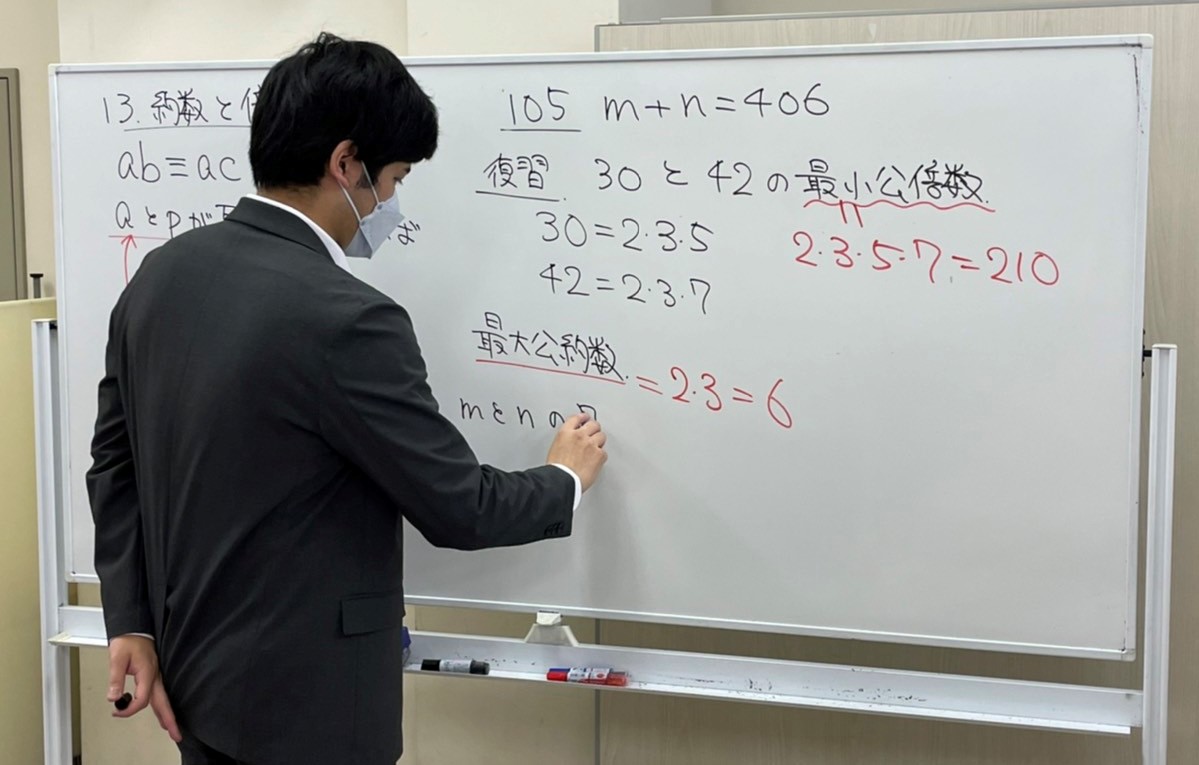 13. 約数と
ab≡ac
aとpが
ば
105 m+n=406
復習 30と42の最小公倍数
30=2·3·5
42=2·3·7
2·3·5·7=210
最大公約数
=2·3=6
mとnの